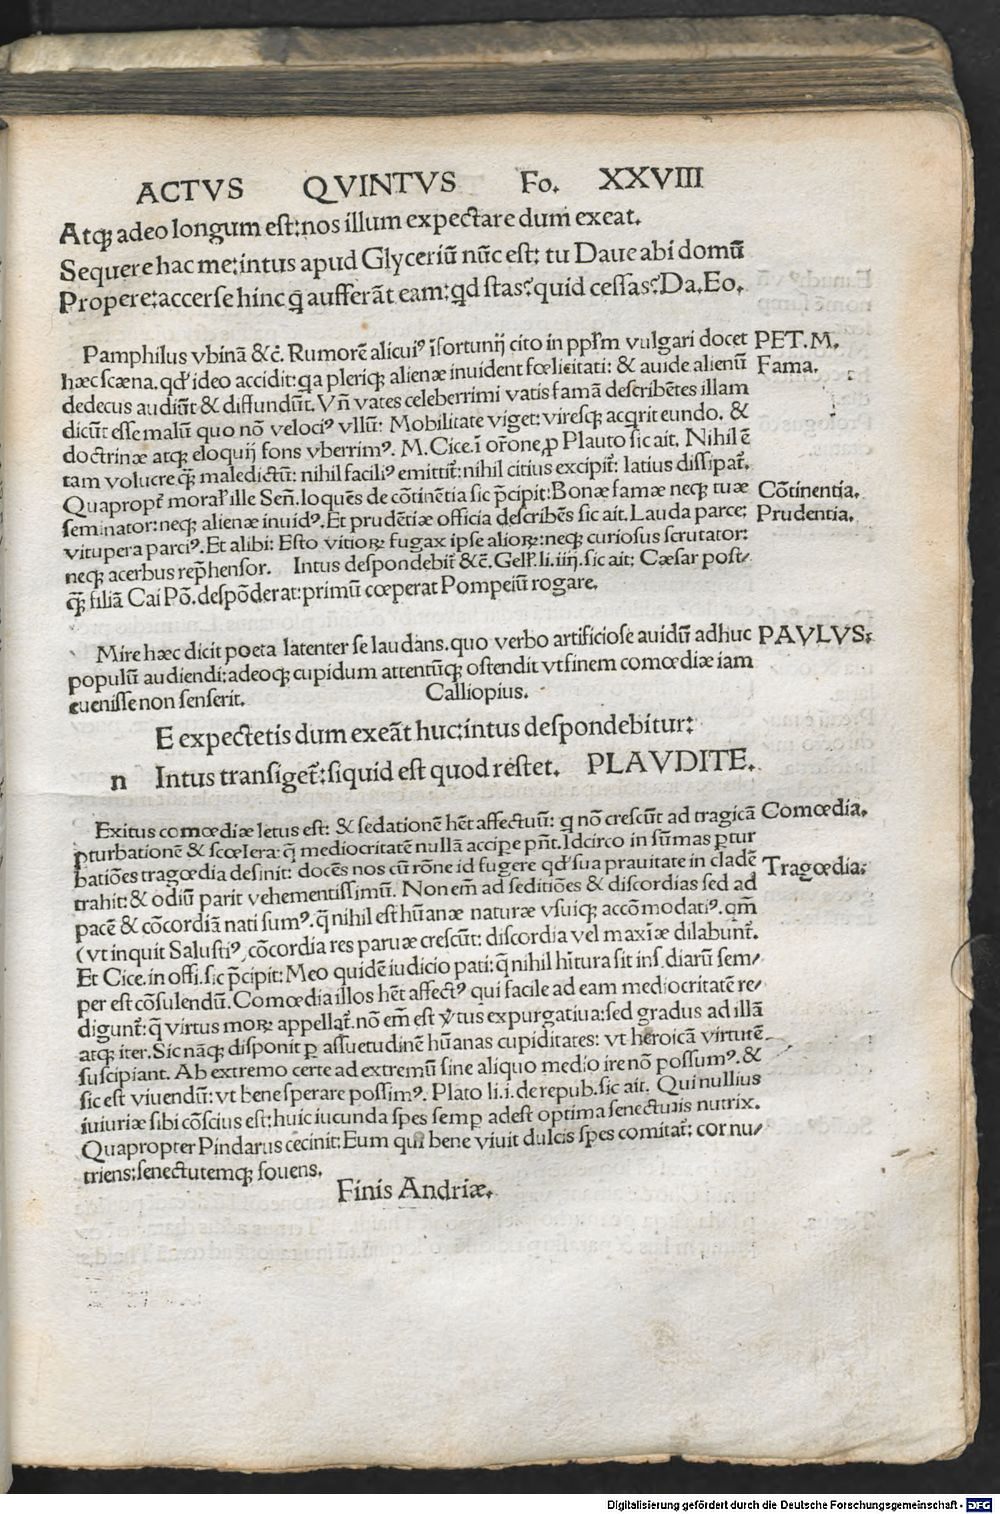 ACTVS QVINTVS Fo. XXVIII
Atq; adeo longum est: nos illum expectare dum exeat.
Sequere hac me: intus apud Glyceriū nūc est: tu Daue abi domū
Propere: accerse hinc q̄ aufferāt eam: qd stas? quid cessas? Da. Eo.
Pamphilus vbinā &c̄. Rumorē alicuiꝰ īfortunij cito in pplm̄ vulgari docet PET. M.
hæc scæna. qd' ideo accidit: qa pleriq; alienæ inuident fœlicitati: & auide alienū Fama.
dedecus audiūt & diffundūt. Vn̄ vates celeberrimi vatis famā describētes illam
dicūt esse malū quo nō velociꝰ vllū: Mobilitate viget: viresq; acqrit eundo. &
doctrinæ atq; eloquij fons vberrimꝰ. M. Cice. ī or̄one ꝓ Plauto sic ait. Nihil ē
tam volucre q̄; maledictū: nihil faciliꝰ emittit̄: nihil citius excipit̄: latius dissipat̄.
Quapropt̄ moral' ille Sen̄. loquēs de cōtinētia sic p̄cipit: Bonæ famæ neq; tuæ Cōtinentia.
seminator: neq; alienæ inuidꝰ. Et prudētiæ officia describēs sic ait. Lauda parce: Prudentia.
vitupera parciꝰ. Et alibi: Esto vitioꝝ fugax ipse alioꝝ: neq; curiosus scrutator:
neq; acerbus rep̄hensor. Intus despondebit̄ &c̄. Gell'. li. iiij. sic ait: Cæsar post/
q̄; filiā Cai Pō. despōderat: primū cœperat Pompeiū rogare.
Mire hæc dicit poeta latenter se laudans. quo verbo artificiose auidū adhuc PAVLVS.
populū audiendi: adeoq; cupidum attentūq; ostendit vt finem comœdiæ iam
euenisse non senserit. Calliopius.
E expectetis dum exeāt huc: intus despondebitur:
n Intus transiget̄: siquid est quod restet. PLAVDITE.
Exitus comœdiæ letus est: & sedationē hēt affectuū: q nō crescūt ad tragicā Comœdia.
ꝑturbationē & scœlera: q̄ mediocritatē nullā accipe pn̄t. Idcirco in sūmas ꝑtur
batiōes tragœdia desinit: docēs nos cū rōne id fugere qd' sua prauitate in cladē Tragœdia.
trahit: & odiū parit vehementissimū. Non em̄ ad seditiōes & discordias sed ad
pacē & cōcordiā nati sumꝰ. q̄ nihil est hūanæ naturæ vsuiq; accōmodatiꝰ. qm̄
(vt inquit Salustiꝰ) cōcordia res paruæ crescūt: discordia vel maxīæ dilabunt̄.
Et Cice. in offi. sic p̄cipit: Meo quidē iudicio pati: q̄ nihil hītura sit insidiarū sem/
per est cōsulendū. Comœdia illos hēt affectꝰ qui facile ad eam mediocritatē re/
digunt̄: q̄ virtus moꝝ appellat̄. nō em̄ est v̄tus expurgatiua: sed gradus ad illā
atq; iter. Sic nāq; disponit ꝑ assuetudinē hūanas cupiditates: vt heroicā virtutē
suscipiant. Ab extremo certe ad extremū sine aliquo medio ire nō possumꝰ. &
sic est viuendū: vt bene sperare possimꝰ. Plato li. i. de repub. sic ait. Qui nullius
iuiuriæ sibi cōscius est: huic iucunda spes semp adest optima senectutis nutrix.
Quapropter Pindarus cecinit: Eum qui bene viuit dulcis spes comitat̄: cor nu/
triens: senectutemq; fouens.
Finis Andriæ.
Digitalisierung gefördert durch die Deutsche Forschungsgemeinschaft - DFG